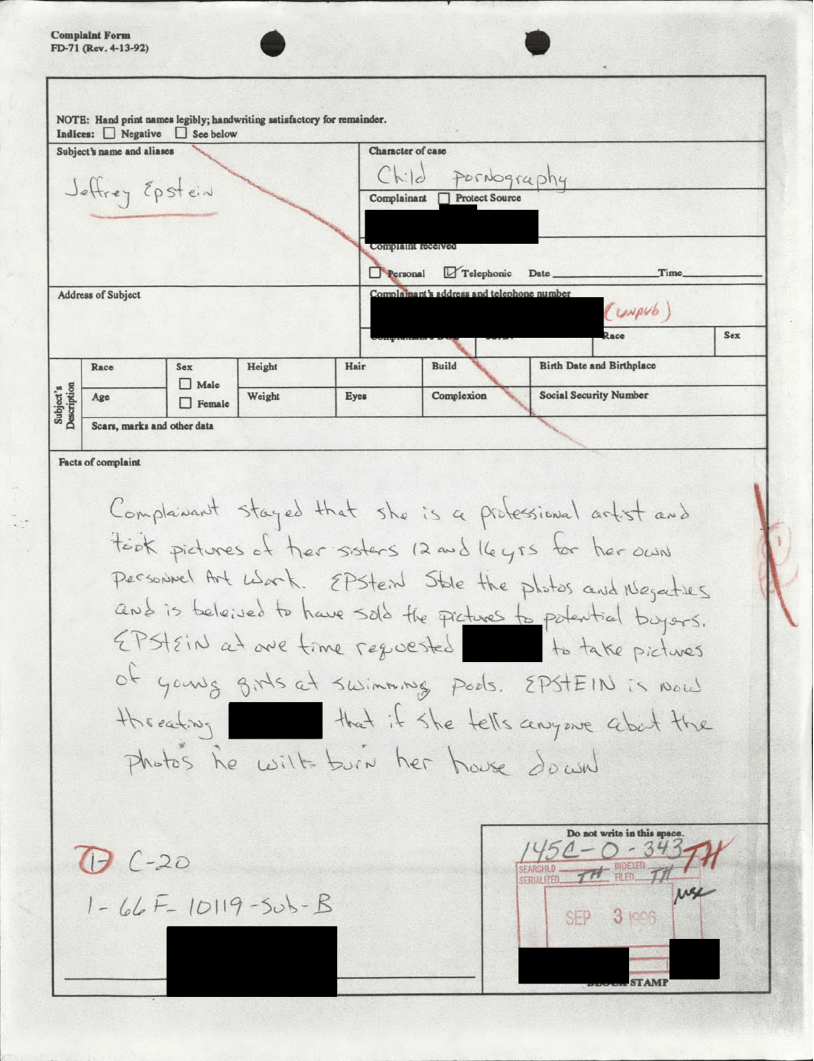 Complaint Form
FD-71 (Rev. 4-13-92)
NOTE: Hand print names legibly; handwriting satisfactory for remainder.
Indices: Negative See below
Subject's name and aliases
Jeffrey Epstein
Character of case
Child Pornography
Complainant Protect Source
Complaint received
Personal Telephonic Date Time
Address of Subject
Complainant's address and telephone number
(unpub)
Race
Sex
Subject's Description
Race
Sex
Male
Female
Height
Hair
Build
Birth Date and Birthplace
Age
Weight
Eyes
Complexion
Social Security Number
Scars, marks and other data
Facts of complaint
Complainant stayed that she is a professional artist and
took pictures of her sisters 12 and 16 yrs for her own
personnel Art work. EPstein Stole the photos and Negaties
and is beleived to have sold the pictures to potential buyers.
EPStEiN at one time requested to take pictures
of young girls at swimming pools. EPSTEIN is now
threating that if she tells anyone about the
photos he will burn her house down
1- C-20
1- 66F-10119-Sub-B
Do not write in this space.
145C-0-343
TH
SEARCHED INDEXED
SERIALIZED TH FILED TH
SEP 3 1996
STAMP